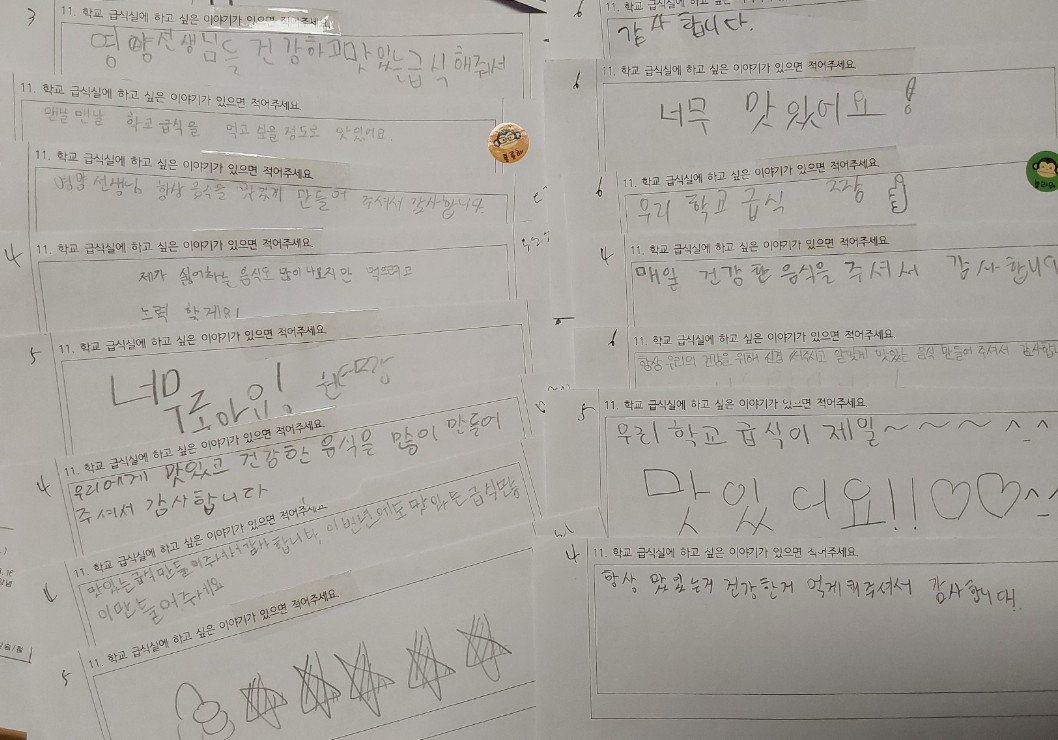 3
11. 학교 급식실에 하고 싶은 이야기가 있으면 적어주세요
영양선생님들 건강하고 맛있는 급식해줘서
11. 학교 급식실에 하고 싶은 이야기가 있으면 적어주세요
맨날맨날 학교 급식을 먹고 보을 정도로 맛있어요.
11. 학교 급식실에 하고 싶은 이야기가 있으면 적어주세요
영양 선생님 항상 음식을 맛있게 만들어 주셔서 감사합니다.
4
11. 학교 급식실에 하고 싶은 이야기가 있으면 적어주세요
제가 싫어하는 음식도 많이 나오지만
노력 할게요!
5
11. 학교 급식실에 하고 싶은 이야기가 있으면 적어주세요.
너무 조아잉
4
11. 학교 급식실에 하고 싶은 이야기가 있으면 적어주세요.
우리에게 맛있고 건강한 음식을 많이 만들어
주셔서 감사합니다
11. 학교 급식실에 하고 싶은 이야기가 있으면 적어주세요
맛있는 급식 만들어주셔서 감사합니다,
5
11. 학교 급식실에 하고 싶은 이야기가 있으면 적어주세요.
6
감사합니다.
6
11. 학교 급식실에 하고 싶은 이야기가 있으면 적어주세요.
너무 맛있어요!
6
11. 학교 급식실에 하고 싶은 이야기가 있으면 적어주세요
우리 학교 급식 짱
4
11. 학교 급식실에 하고 싶은 이야기가 있으면 적어주세요.
매일 건강한 음식을 주셔서 감사합니다
6
11. 학교 급식실에 하고 싶은 이야기가 있으면 적어주세요.
항상 우리의 건강을 위해 신경 써주시고 알맞게 맛있는 음식 만들어 주셔서 감사합니
5
11. 학교 급식실에 하고 싶은 이야기가 있으면 적어주세요.
우리 학교 급식이 제일~~~ ^_^
맛있어요!!♡♡^^
4
11. 학교 급식실에 하고 싶은 이야기가 있으면 적어주세요.
항상 맛있는거 건강한거 먹게 해주셔서 감사합니다!